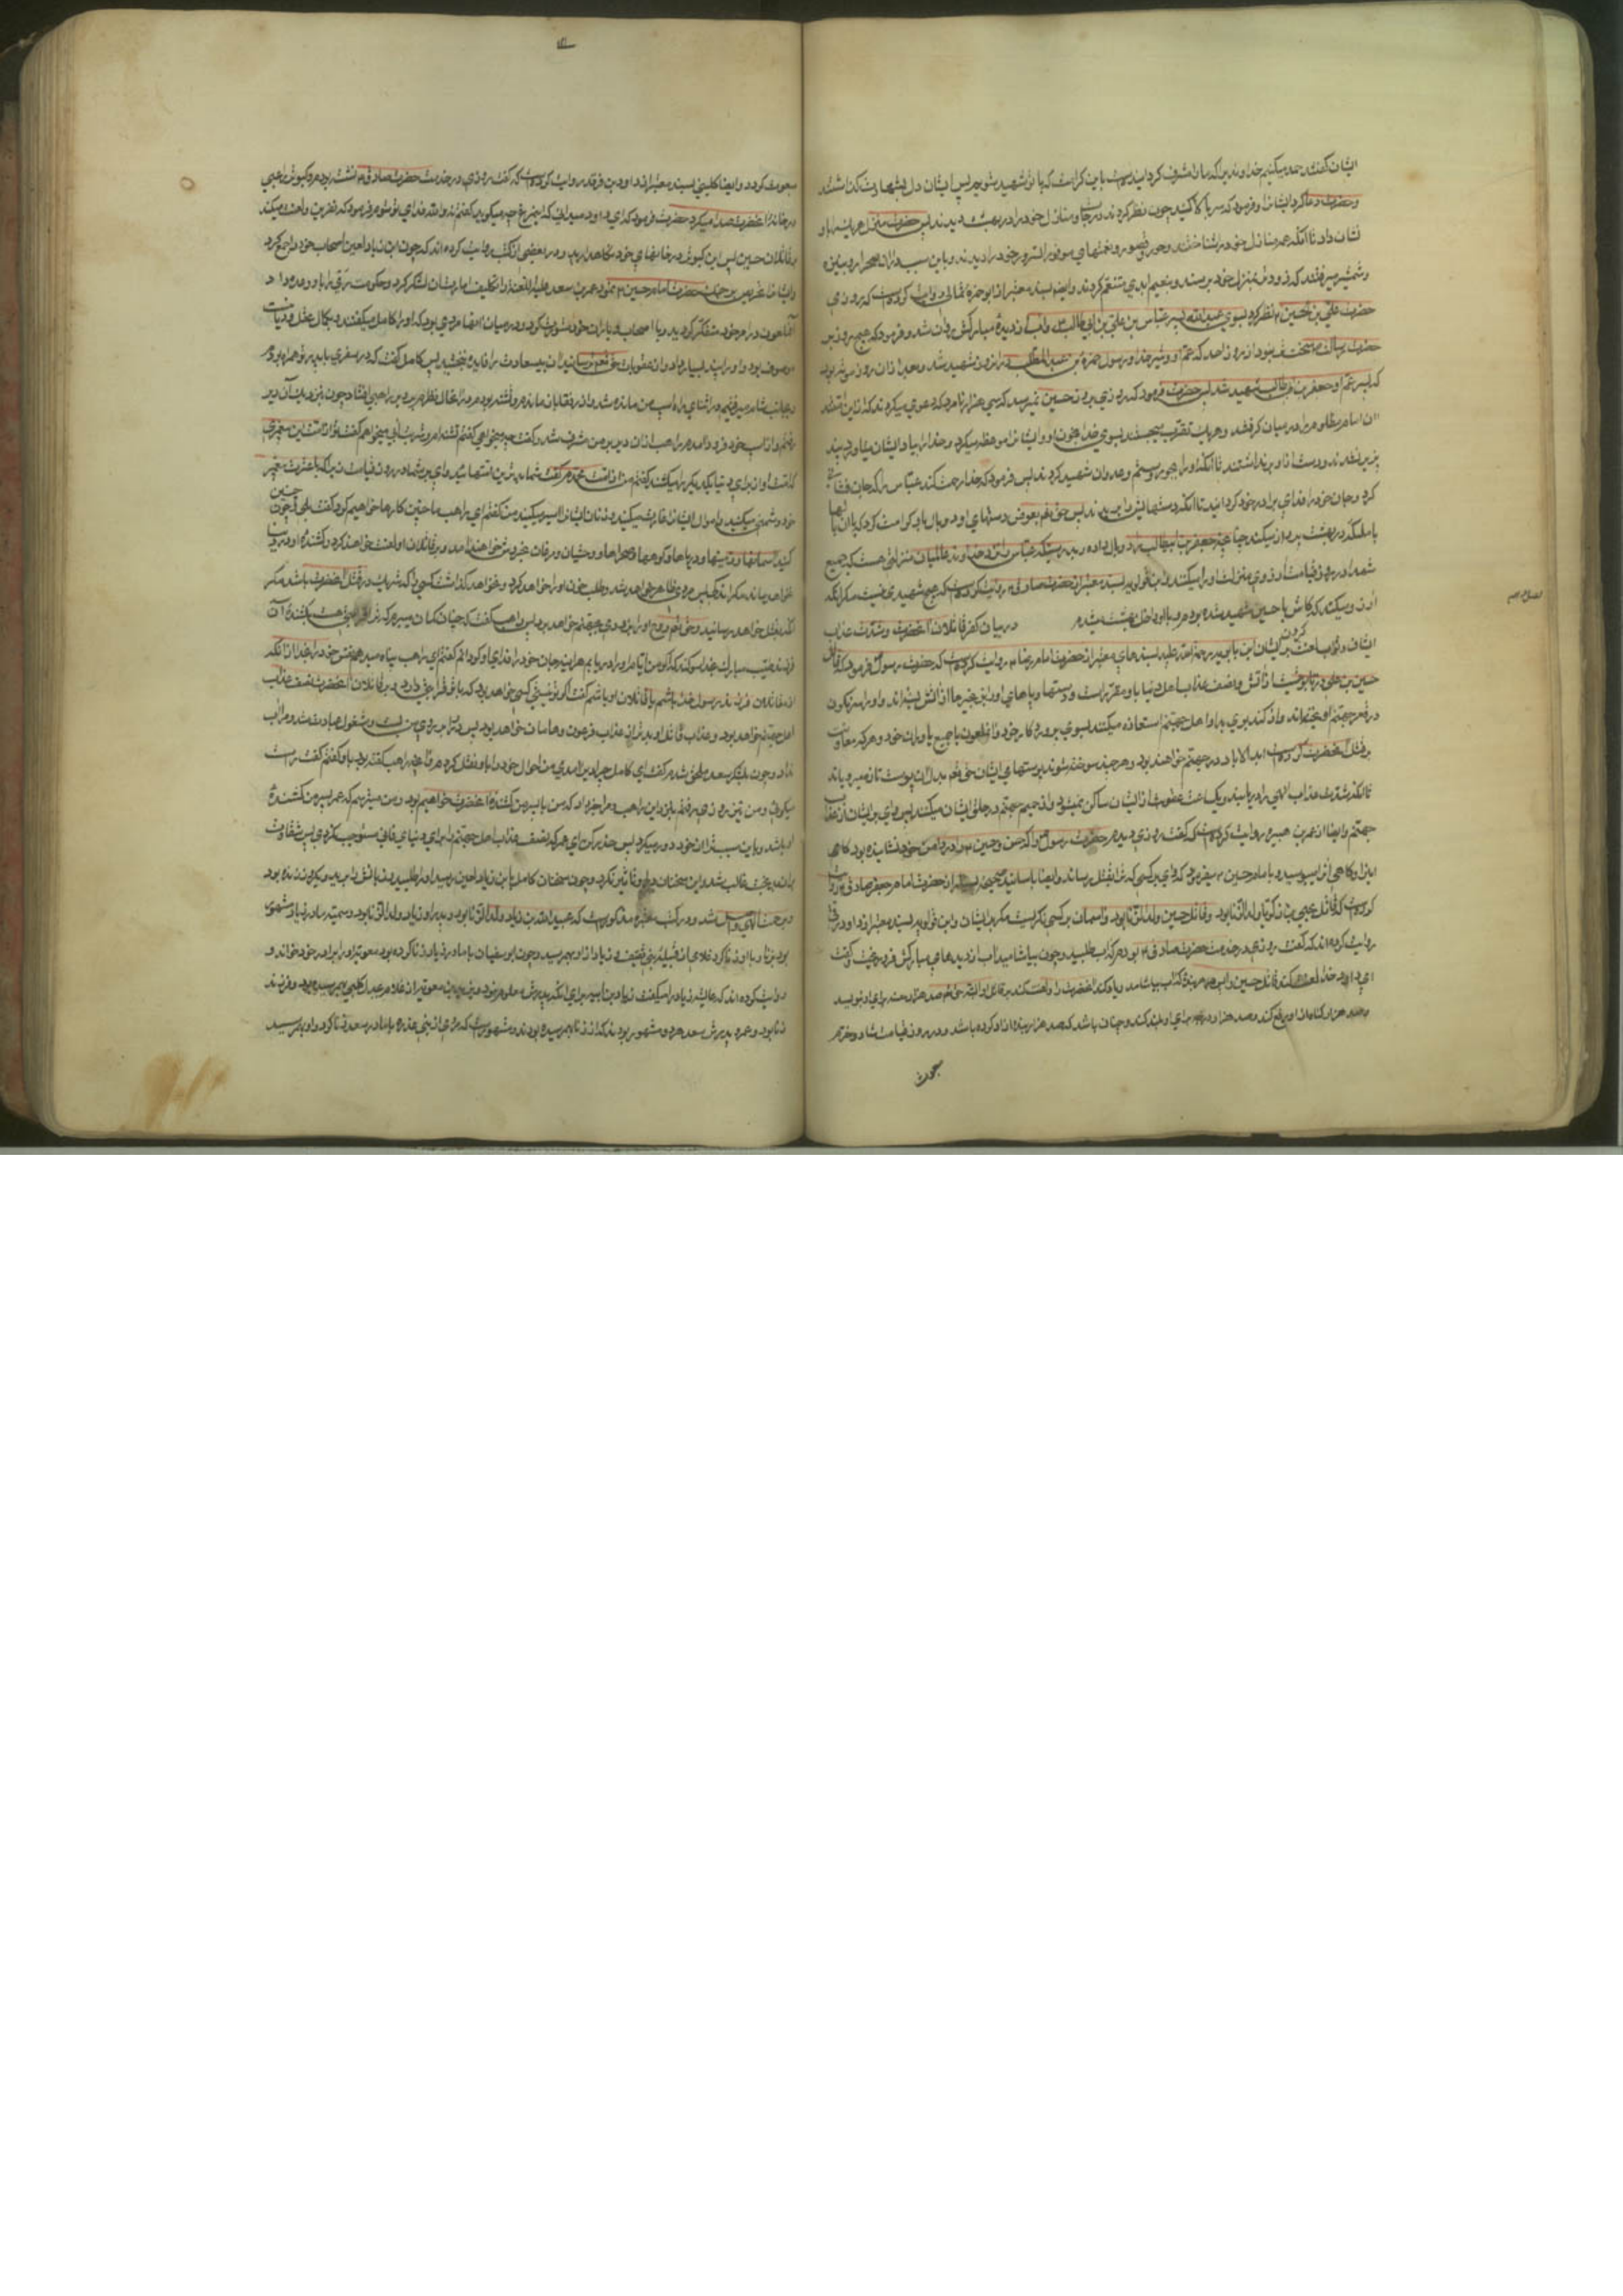 ایشان گفتند حمد میکنیم خداوندی را که ما را مشرف گردانیده است باین کرامت که با تو شهید شویم پس ایشان دل بشهادت گذاشتند
و حضرت دعا کرد ایشانرا و فرمود که سر بالا کنید چون نظر کردند درجات و منازل خود را در بهشت دیدند پس حضرت منزل هر یک را باو
نشان داد تا آنکه همه منازل خود را شناختند و حور و قصور و نعمتهای موفور السرور خود را دیدند و باین سبب در آن صحرا بر
و شمشیر میرفتند که زودتر بمنزل خود برسند و بنعیم ابدی متنعم گردند و ایضا بسند معتبر از ابو حمزه ثمالی روایت کرده است که روزی
حضرت علی بن الحسین نظر کرد بسوی عبید الله پسر عباس بن علی بن ابی طالب و آب از دیده مبارکش روان شد و فرمود که هیچ روز بر
حضرت رسالت سخت تر نبود از روز احد که عم او و شیر خدا و رسول حمزة بن عبد المطلب در آن روز شهید شد و بعد از آن روز موته بود
که پسر عم او جعفر بن ابی طالب شهید شد پس حضرت فرمود که روزی بروز حسین نمیرسد که سی هزار نامرد که دعوی میکردند که از این امتند
آن امام مظلوم را در میان گرفتند و هر یک تقرب میجستند بسوی خدا بخون او و ایشانرا موعظه میکرد و خدا را بیاد ایشان میآورد
پذیر نشدند و دست از او برنداشتند تا آنکه او را بجور و ستم و عدوان شهید کردند پس فرمود که خدا رحمت کند عباس را که جان فشانی
کرد و جان خود را فدای برادر خود گردانید تا آنکه دستهایش را بریدند پس حق تعالی بعوض دستهای او دو بال باو کرامت کرد که با آن بالها
با ملئکه در بهشت پرواز میکند چنانچه جعفر بن ابیطالب را دو بال داده و بدرستیکه عباس را نزد خداوند عالمیان منزلتی هست که جمیع
شهدا در روز قیامت آرزوی منزلت او را میکنند و ابن قولویه بسند معتبر از حضرت صادق روایت کرده است که هیچ شهیدی نیست مگر آنکه
آرزو میکند که کاش با حسین شهید شده بودم و با او داخل بهشت میشدم در بیان کفر قاتلان آنحضرت و شدت عذاب
ایشان و ثواب لعنت کردن بر ایشان ابن بابویه رحمة الله علیه بسندهای معتبر از حضرت امام رضا روایت کرده است که حضرت رسول فرمود که قاتل
حسین بن علی در تابوتیست از آتش و نصف عذاب اهل دنیا باو مقرر است و دستها و پاهای او را بزنجیرها از آتش بسته‌اند و او را سرنگون
در قعر جهنم آویخته‌اند و از گند بوی بد او اهل جهنم استعاذه میکنند بسوی پروردگار خود و آنملعون با جمیع یاوران خود و هر که معاونت
بر قتل آنحضرت کرده است ابد الاباد در جهنم خواهند بود و هر چند سوخته شوند پوستهای ایشان حق تعالی بدل آن پوست تازه میرویاند
تا آنکه شدت عذاب الهی را دریابند و یک ساعت عقوبت از ایشان ساکن نمیشود و از حمیم جهنم در حلق ایشان میکنند پس وای بر ایشان از عذاب
جهنم و ایضا از عمر بن هبیره روایت کرده است که گفت روزی دیدم حضرت رسول را که حسن و حسین را در دامن خود نشانیده بود گاهی
اینرا و گاهی آنرا میبوسید و با امام حسین میفرمود که وای بر کسی که ترا بقتل رساند و ایضا باسانید صحیحه بسیار از حضرت امام جعفر صادق روایت
کرده است که قاتل یحیی بن زکریا ولد الزنا بود و قاتل حسین ولد الزنا بود و آسمان بر کسی نگریست مگر بر ایشان و ابن قولویه بسند معتبر از داود رقی
روایت کرده‌اند که گفت روزی در خدمت حضرت صادق بودم که آب طلبید و چون بیاشامید آب از دیده‌های مبارکش فرو ریخت و گفت
ای داود خدا لعنت کند قاتل حسین را پس هر بنده که آب بیاشامد و یاد کند آنحضرت را و لعنت کند بر قاتل او البته حق تعالی صد هزار حسنه برای او بنویسد
و صد هزار گناه از او رفع کند و صد هزار درجه برای او بلند کند و چنان باشد که صد هزار بنده آزاد کرده باشد و در روز قیامت شاد و خرم
مبعوث گردد و ایضا کلینی بسند معتبر از داود بن فرقد روایت کرده است که گفت روزی در خدمت حضرت صادق نشسته بودم و کبوتر راعبی
در خانه آنحضرت صدا میکرد حضرت فرمود که ای داود میدانی که این مرغ چه میگوید گفتم نه والله فدای تو شوم فرمود که نفرین و لعنت میکند
بر قاتلان حسین پس این کبوتر در خانهای خود نگاهدارید و در بعضی از کتب روایت کرده‌اند که چون ابن زیاد لعین اصحاب خود را جمع کرد
و ایشانرا تحریص بر جنگ حضرت امام حسین نمود عمر بن سعد علیه اللعنه را تکلیف امارت آن لشکر کرد و حکومت ری را باو وعده داد
آنملعون در امر خود متفکر گردید و با اصحاب و یاران خود مشورت کرد و در میان آنها مردی بود که او را کامل میگفتند و بکمال عقل و دیانت
موصوف بود و او را پند بسیار داد و از عقوبات حق تعالی ترسانید آن بیسعادت را فایده نبخشید پس کامل گفت که در سفری با پدر تو همراه بودم
و بجانب شام میرفتیم در اثنای راه اسب من مانده شد و از رفقا بازماندم و تشنه بودم در آنحال نظرم بر دیر راهبی افتاد چون بنزدیک آن دیر
رفتم و از اسب خود فرود آمدم راهب از آن دیر بر من مشرف شد و گفت چه میخواهی گفتم تشنه‌ام و شربت آبی میخواهم گفت تو از امت این پیغمبری
که امت او از برای دنیا یکدیگر را میکشند گفتم من از امت محمدم گفت شما بدترین امتهائید وای بر شما در روز قیامت زیرا که با عترت پیغمبر
خود دشمنی میکنید و اموال ایشانرا غارت میکنید و زنان ایشانرا اسیر میکنید من گفتم ای راهب ما چنین کارها خواهیم کرد گفت بلی و چون چنین
کنید آسمانها و زمینها و دریاها و کوهها و صحراها و وحشیان و مرغان بخروش خواهند آمد و بر قاتلان او لعنت خواهند کرد و کشنده او در دنیا
نخواهد ماند مگر اندکی پس مردی ظاهر خواهد شد و طلب خون او را خواهد کرد و نخواهد گذاشت کسی را که شریک در قتل آنحضرت باشد مگر
آنکه بقتل خواهد رسانید و حق تعالی روح او را بزودی بجهنم خواهد برد پس راهب گفت که چنان گمان میبرم که ترا قرابتی هست بکشنده آن
فرزند طیب مبارک بخدا سوگند که اگر من ایام او را دریابم هر آینه جان خود را فدای او گردانم گفتم ای راهب پناه میدهم نفس خود را بخدا از آنکه
از قاتلان فرزند رسول خدا باشم یا قاتلان او باشم گفت اگر تو نیستی کسی خواهد بود که با تو قرابتی دارد و بر قاتلان آنحضرت نصف عذاب
اهل جهنم خواهد بود و عذاب قاتل او بدتر از عذاب فرعون و هامان خواهد بود پس در را بر روی من بست و مشغول عبادت شد و مرا آب
نداد و چون بلشکر سعد ملحق شدم گفت ای کامل چرا دیر آمدی من احوال خود را باو نقل کردم و آنچه راهب گفته بود باو گفتم گفت راست
میگوئی و من نیز روزی رفتم بنزد این راهب و مرا خبر داد که من یا پسر من کشنده آنحضرت خواهیم بود و من میترسم که عمر پسر من کشنده
او باشد و باین سبب او را از خود دور میکرد پس حذر کن ای عمر که نصف عذاب اهل جهنم را برای دنیای فانی مستوجب نگردی پس شقاوت
بر آن بدبخت غالب شد و این سخنان در او تاثیر نکرد و چون سخنان کامل بابن زیاد لعین رسید او را طلبید و زبانش را برید و یکروز زنده بود
و برحمت الهی واصل شد و در کتب معتبره مذکور است که عبید الله بن زیاد ولد الزنا بود و پدر او زیاد ولد الزنا بود و سمیه مادر زیاد مشهوره
بود بزنا و با او زنا کرد غلامی از قبیله بنی ثقیف و زیاد از او بهم رسید و چون ابو سفیان با مادر زیاد زنا کرده بود معویه او را برادر خود خواند و
روایت کرده‌اند که عایشه زیاد را میگفت زیاد بن ابیه برای آنکه پدرش معلوم نبود و معویه از غلام عبد کلبی بهم رسیده بود و فرزند
زنا بود و عمر و پدرش سعد هر دو مشهور بودند که از زنا بهم رسیده بودند و مشهور است که مردی از بنی عذره با مادر سعد زنا کرد و او بهم رسید
مبعوث